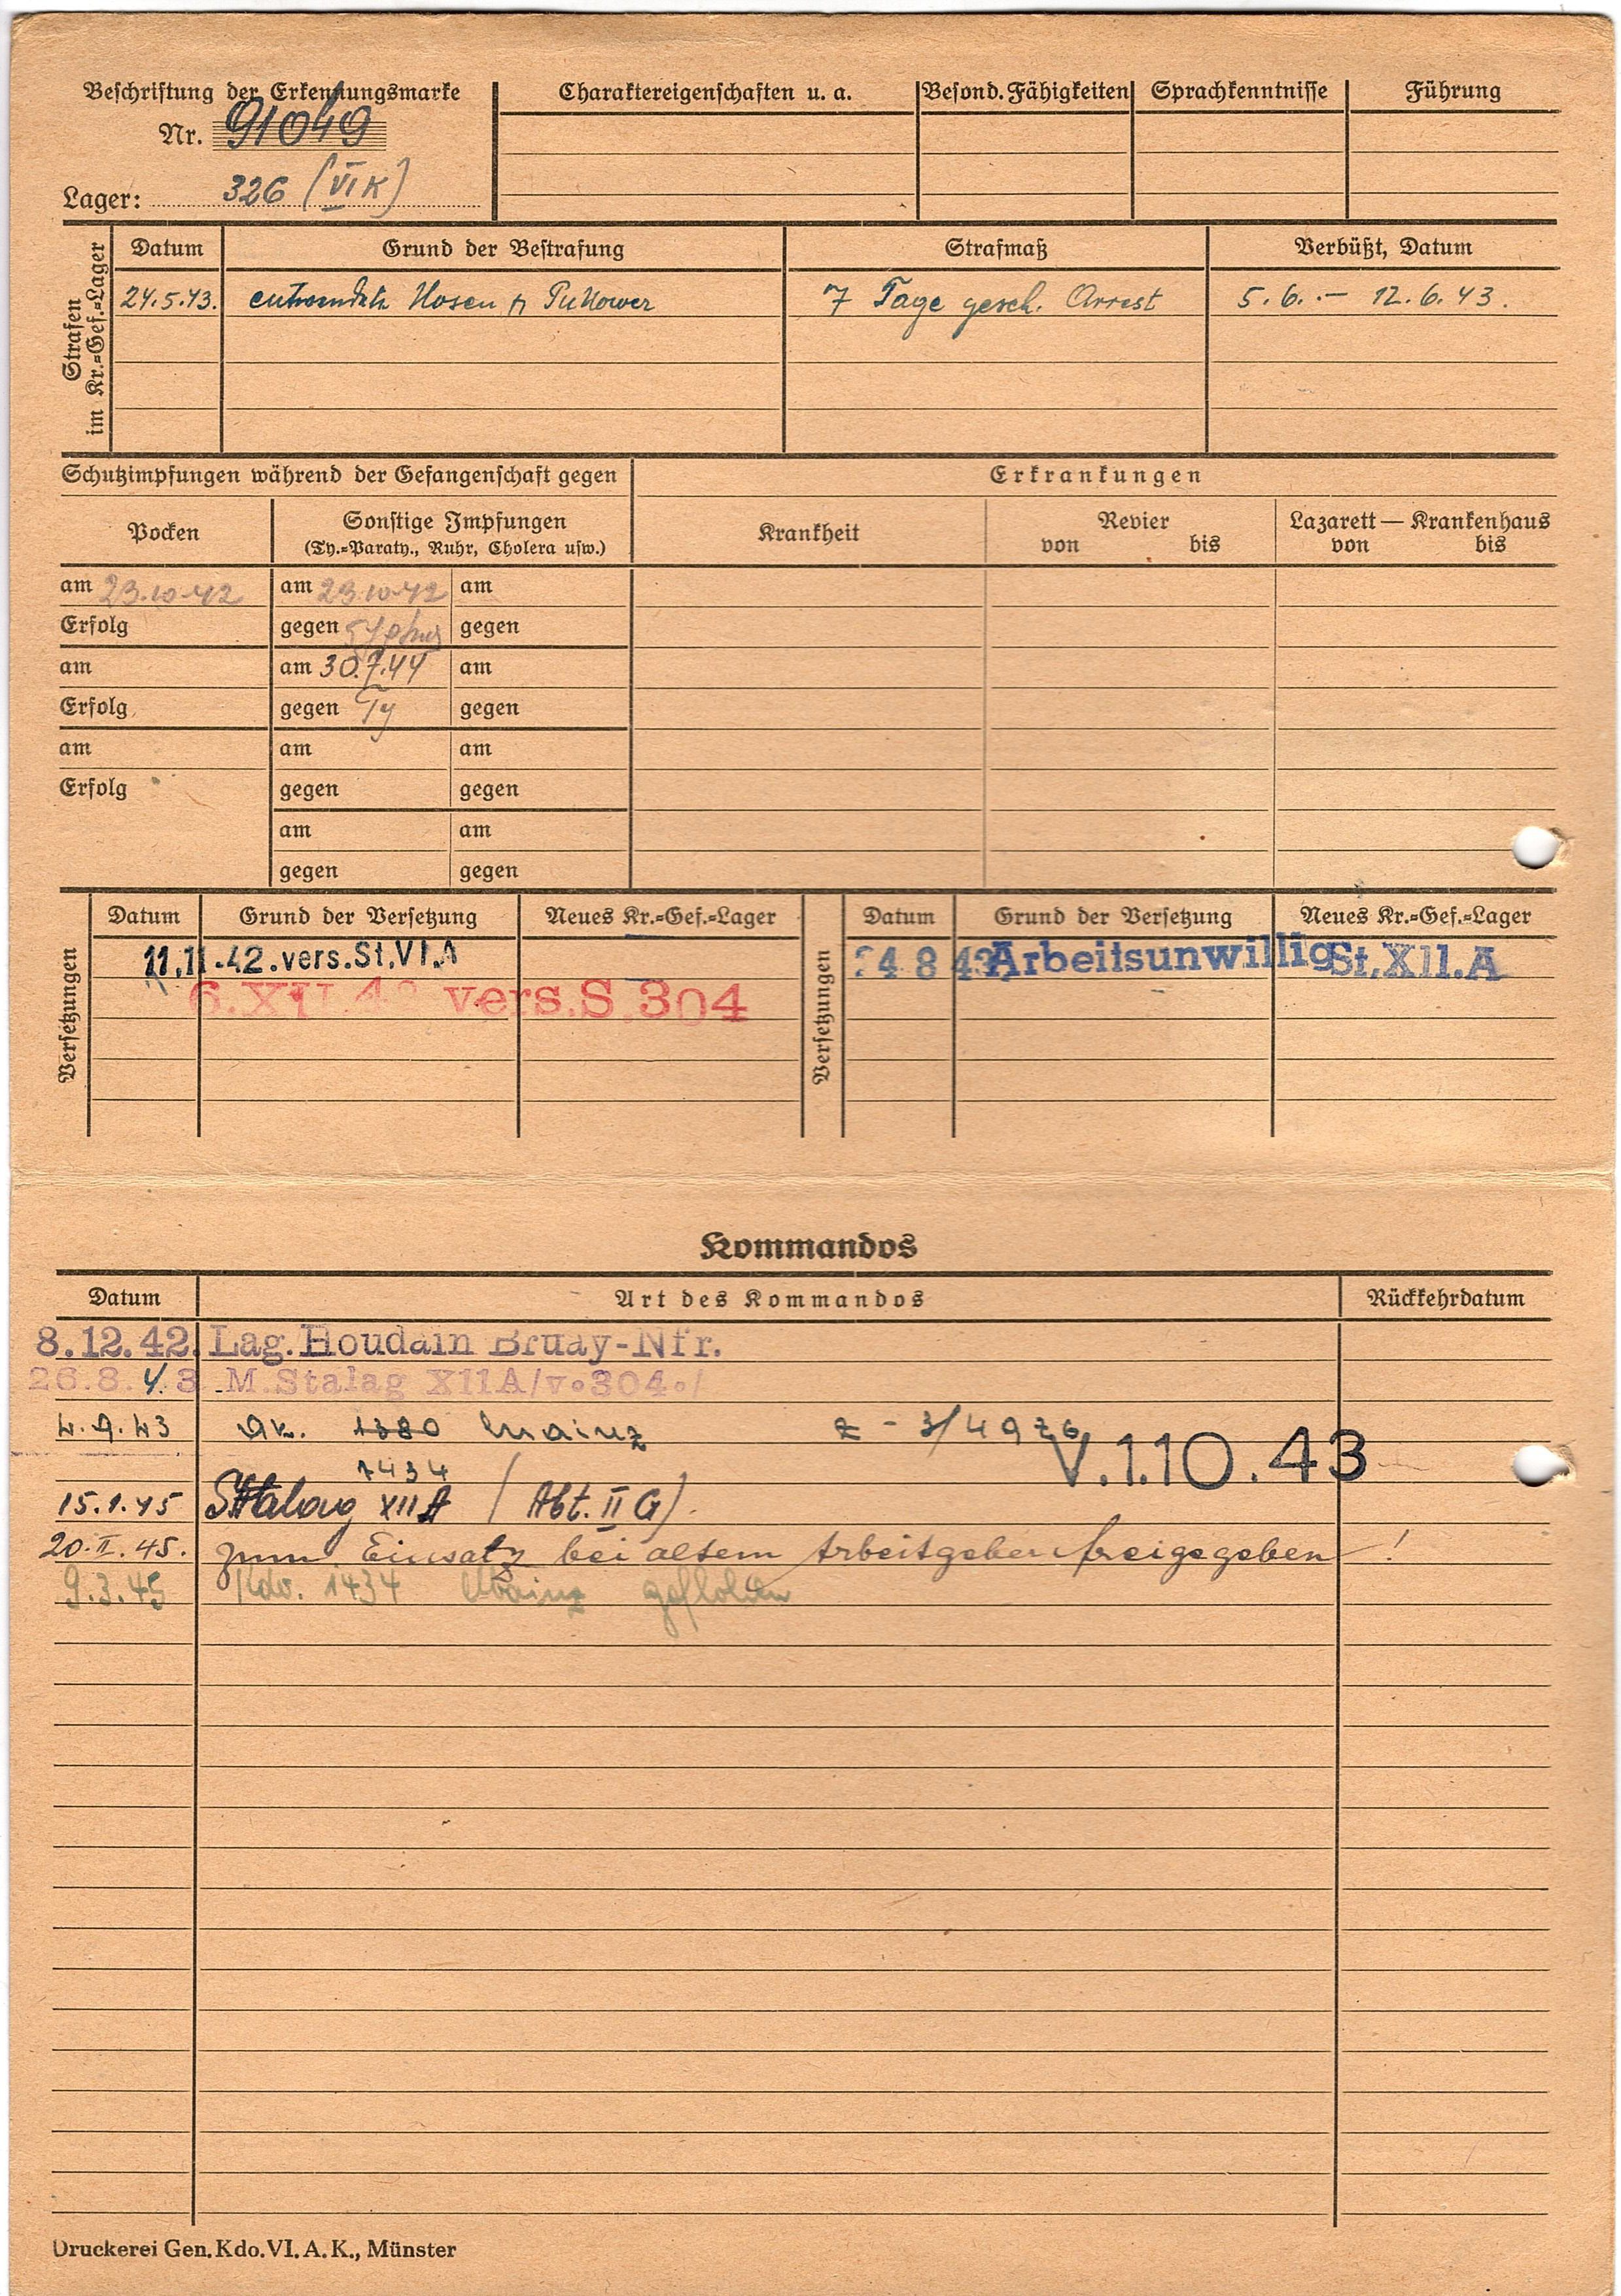 Beschriftung der Erkennungsmarke
Nr. 91049
Lager: 326 (VI K)
Charaktereigenschaften u. a.
Besond. Fähigkeiten
Sprachkenntnisse
Führung
Strafen im Kr.=Gef.=Lager
Datum Grund der Bestrafung Strafmaß Verbüßt, Datum
24.5.43. entwendete Hosen Pullower 7 Tage gesch. Arrest 5.6. – 12.6.43.
Schutzimpfungen während der Gefangenschaft gegen
Erkrankungen
Pocken Sonstige Impfungen Krankheit Revier Lazarett — Krankenhaus
(Ty.=Paraty., Ruhr, Cholera usw.) von bis von bis
am 23.10.42 am 23.10.42 am
Erfolg gegen gegen
am am 30.7.44 am
Erfolg gegen Ty gegen
am am am
Erfolg gegen gegen
am am
gegen gegen
Versetzungen
Datum Grund der Versetzung Neues Kr.=Gef.=Lager
11.11.42.vers.St.VI.A
6.XII.42 vers.S.304
Versetzungen
Datum Grund der Versetzung Neues Kr.=Gef.=Lager
24 8 43 Arbeitsunwillig St.XII.A
Kommandos
Datum Art des Kommandos Rückkehrdatum
8.12.42. Lag. Houdain Bruay-Nfr.
26.8.43 M.Stalag XIIA/v.304./
4.9.43 1380 Mainz Z - 3/4976
1434 V.1.10.43
15.1.45 Stalag XII A (Abt. II G).
20.II.45. zum Einsatz bei altem Arbeitgeber freigegeben!
9.3.45 Kdo. 1434 Mainz geflohen
Druckerei Gen. Kdo. VI. A. K., Münster